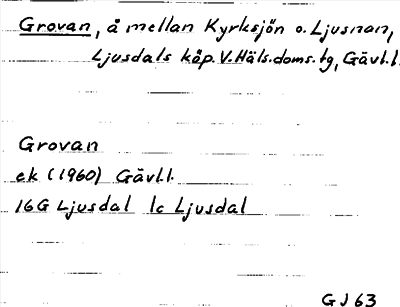 Grovan, å mellan Kyrksjön o. Ljusnan,
Ljusdals köp. V. Häls. doms. tg, Gävl.l.
Grovan
ek (1960) Gävl.l.
16G Ljusdal 1c Ljusdal
GJ 63